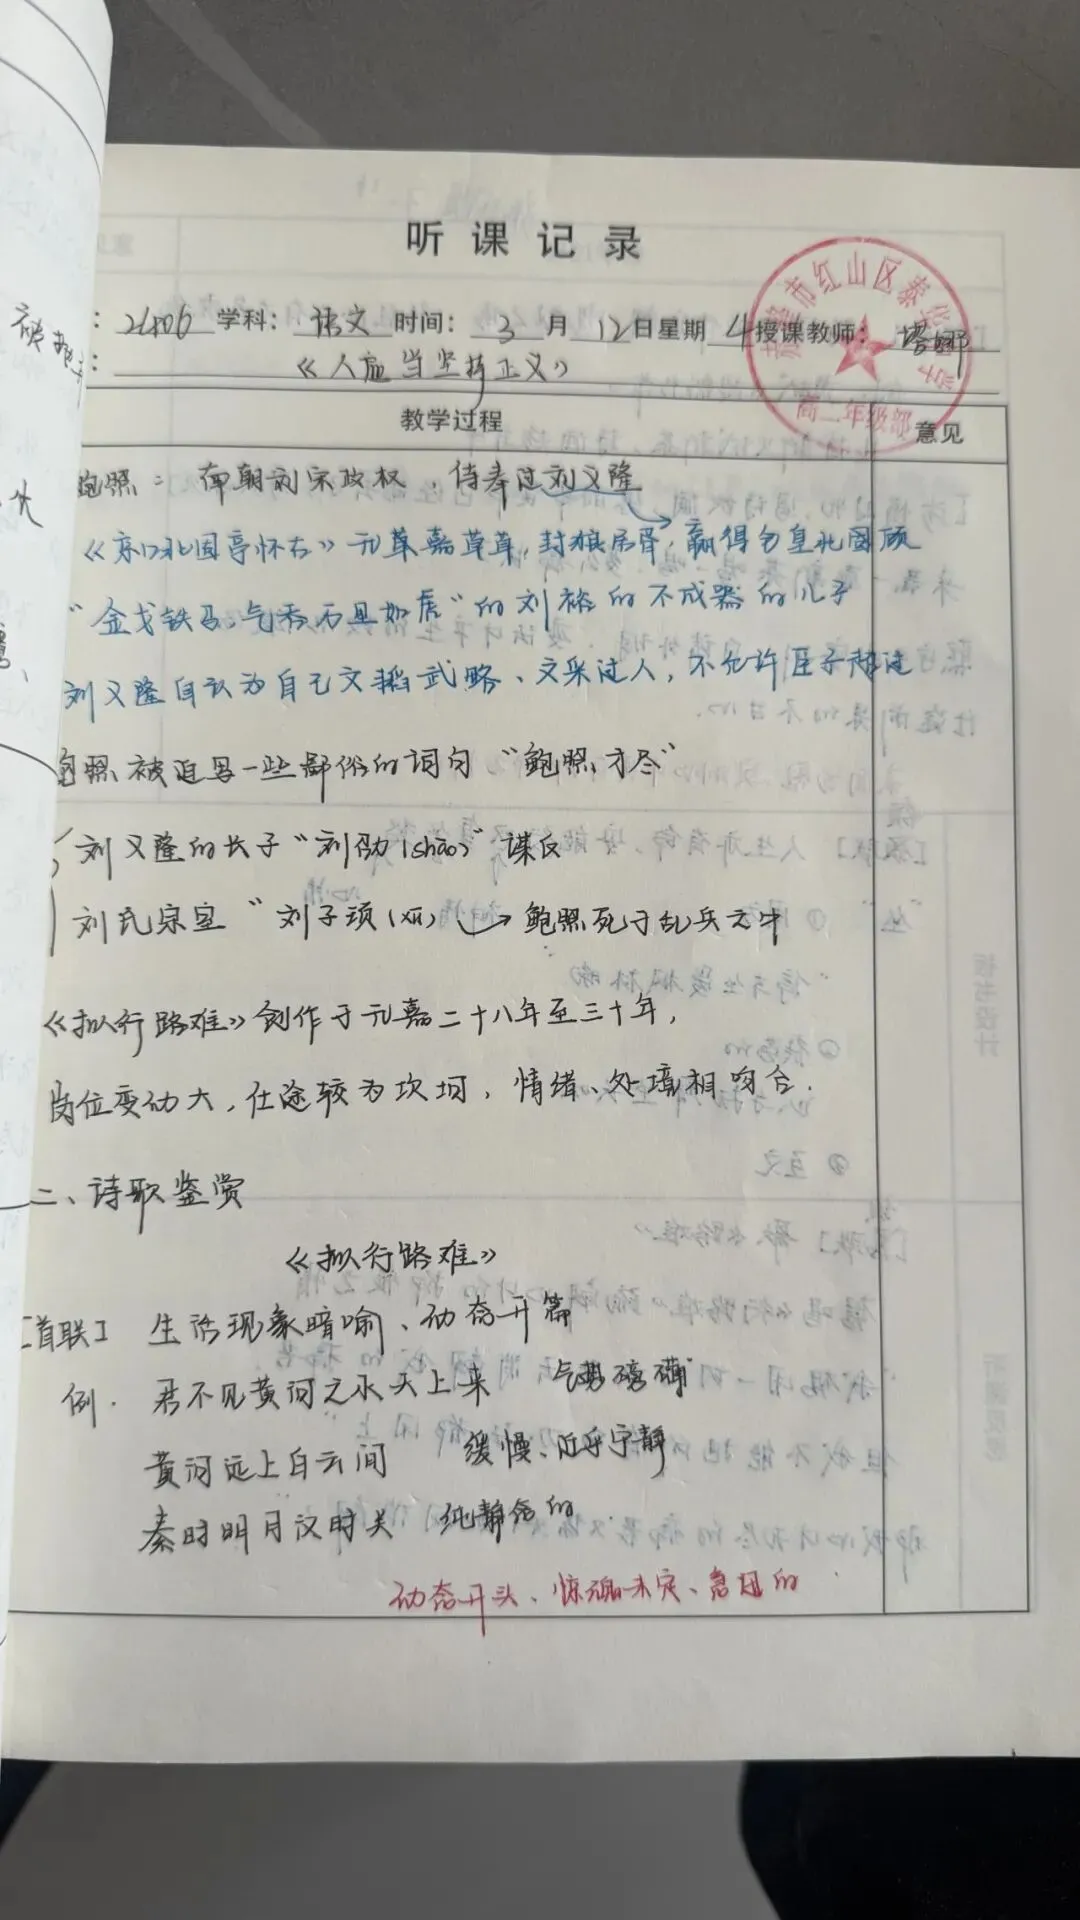 听课记录
2406 学科：语文 时间：3月12日星期4 授课教师：塔娜
《人应当坚持正义》
教学过程 意见
鲍照：南朝刘宋政权，侍奉过刘义隆
《京口北固亭怀古》元嘉草草，封狼居胥，赢得仓皇北顾
“金戈铁马，气吞万里如虎”的刘裕的不成器的儿子
刘义隆自认为自己文韬武略、文采过人，不允许臣子超过
鲍照被迫写一些鄙俗的词句“鲍照才尽”
刘义隆的长子“刘劭(shào)”谋反
刘氏宗室“刘子顼(xū) → 鲍照死于乱兵之中
《拟行路难》创作于元嘉二十八年至三十年，
岗位变动大，仕途较为坎坷，情绪、处境相吻合.
二、诗歌鉴赏
《拟行路难》
[首联] 生活现象暗喻、动态开篇
例. 君不见黄河之水天上来 气势磅礴
黄河远上白云间 缓慢、近乎宁静
秦时明月汉时关 纯静态的
动态开头、惊魂未定、急迫的
赤峰市红山区泰华学
高二年级部